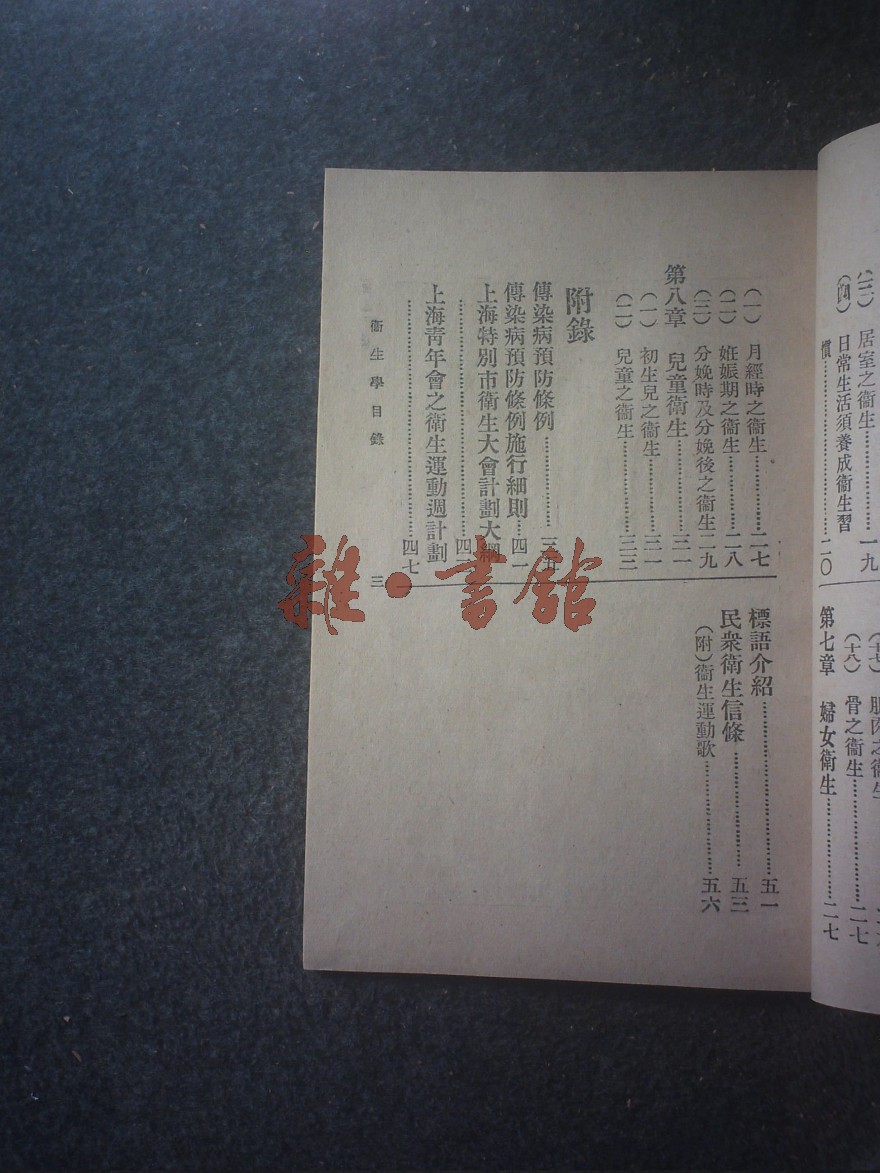 （三）　居室之衞生……一九
（四）　日常生活須養成衞生習
慣……二〇
（十八）　骨之衞生……二七
第七章　婦女衞生……二七
（一）　月經時之衞生……二七
（二）　姙娠期之衞生……二八
（三）　分娩時及分娩後之衞生二九
第八章　兒童衞生……三一
（一）　初生兒之衞生……三一
（二）　兒童之衞生……三三
附錄
傳染病預防條例……三五
傳染病預防條例施行細則……四一
上海特別市衞生大會計劃大綱
上海靑年會之衞生運動週計劃
……四七
標語介紹……五一
民衆衞生信條……五三
（附）衞生運動歌……五六
衞生學目錄
三
雜·書館